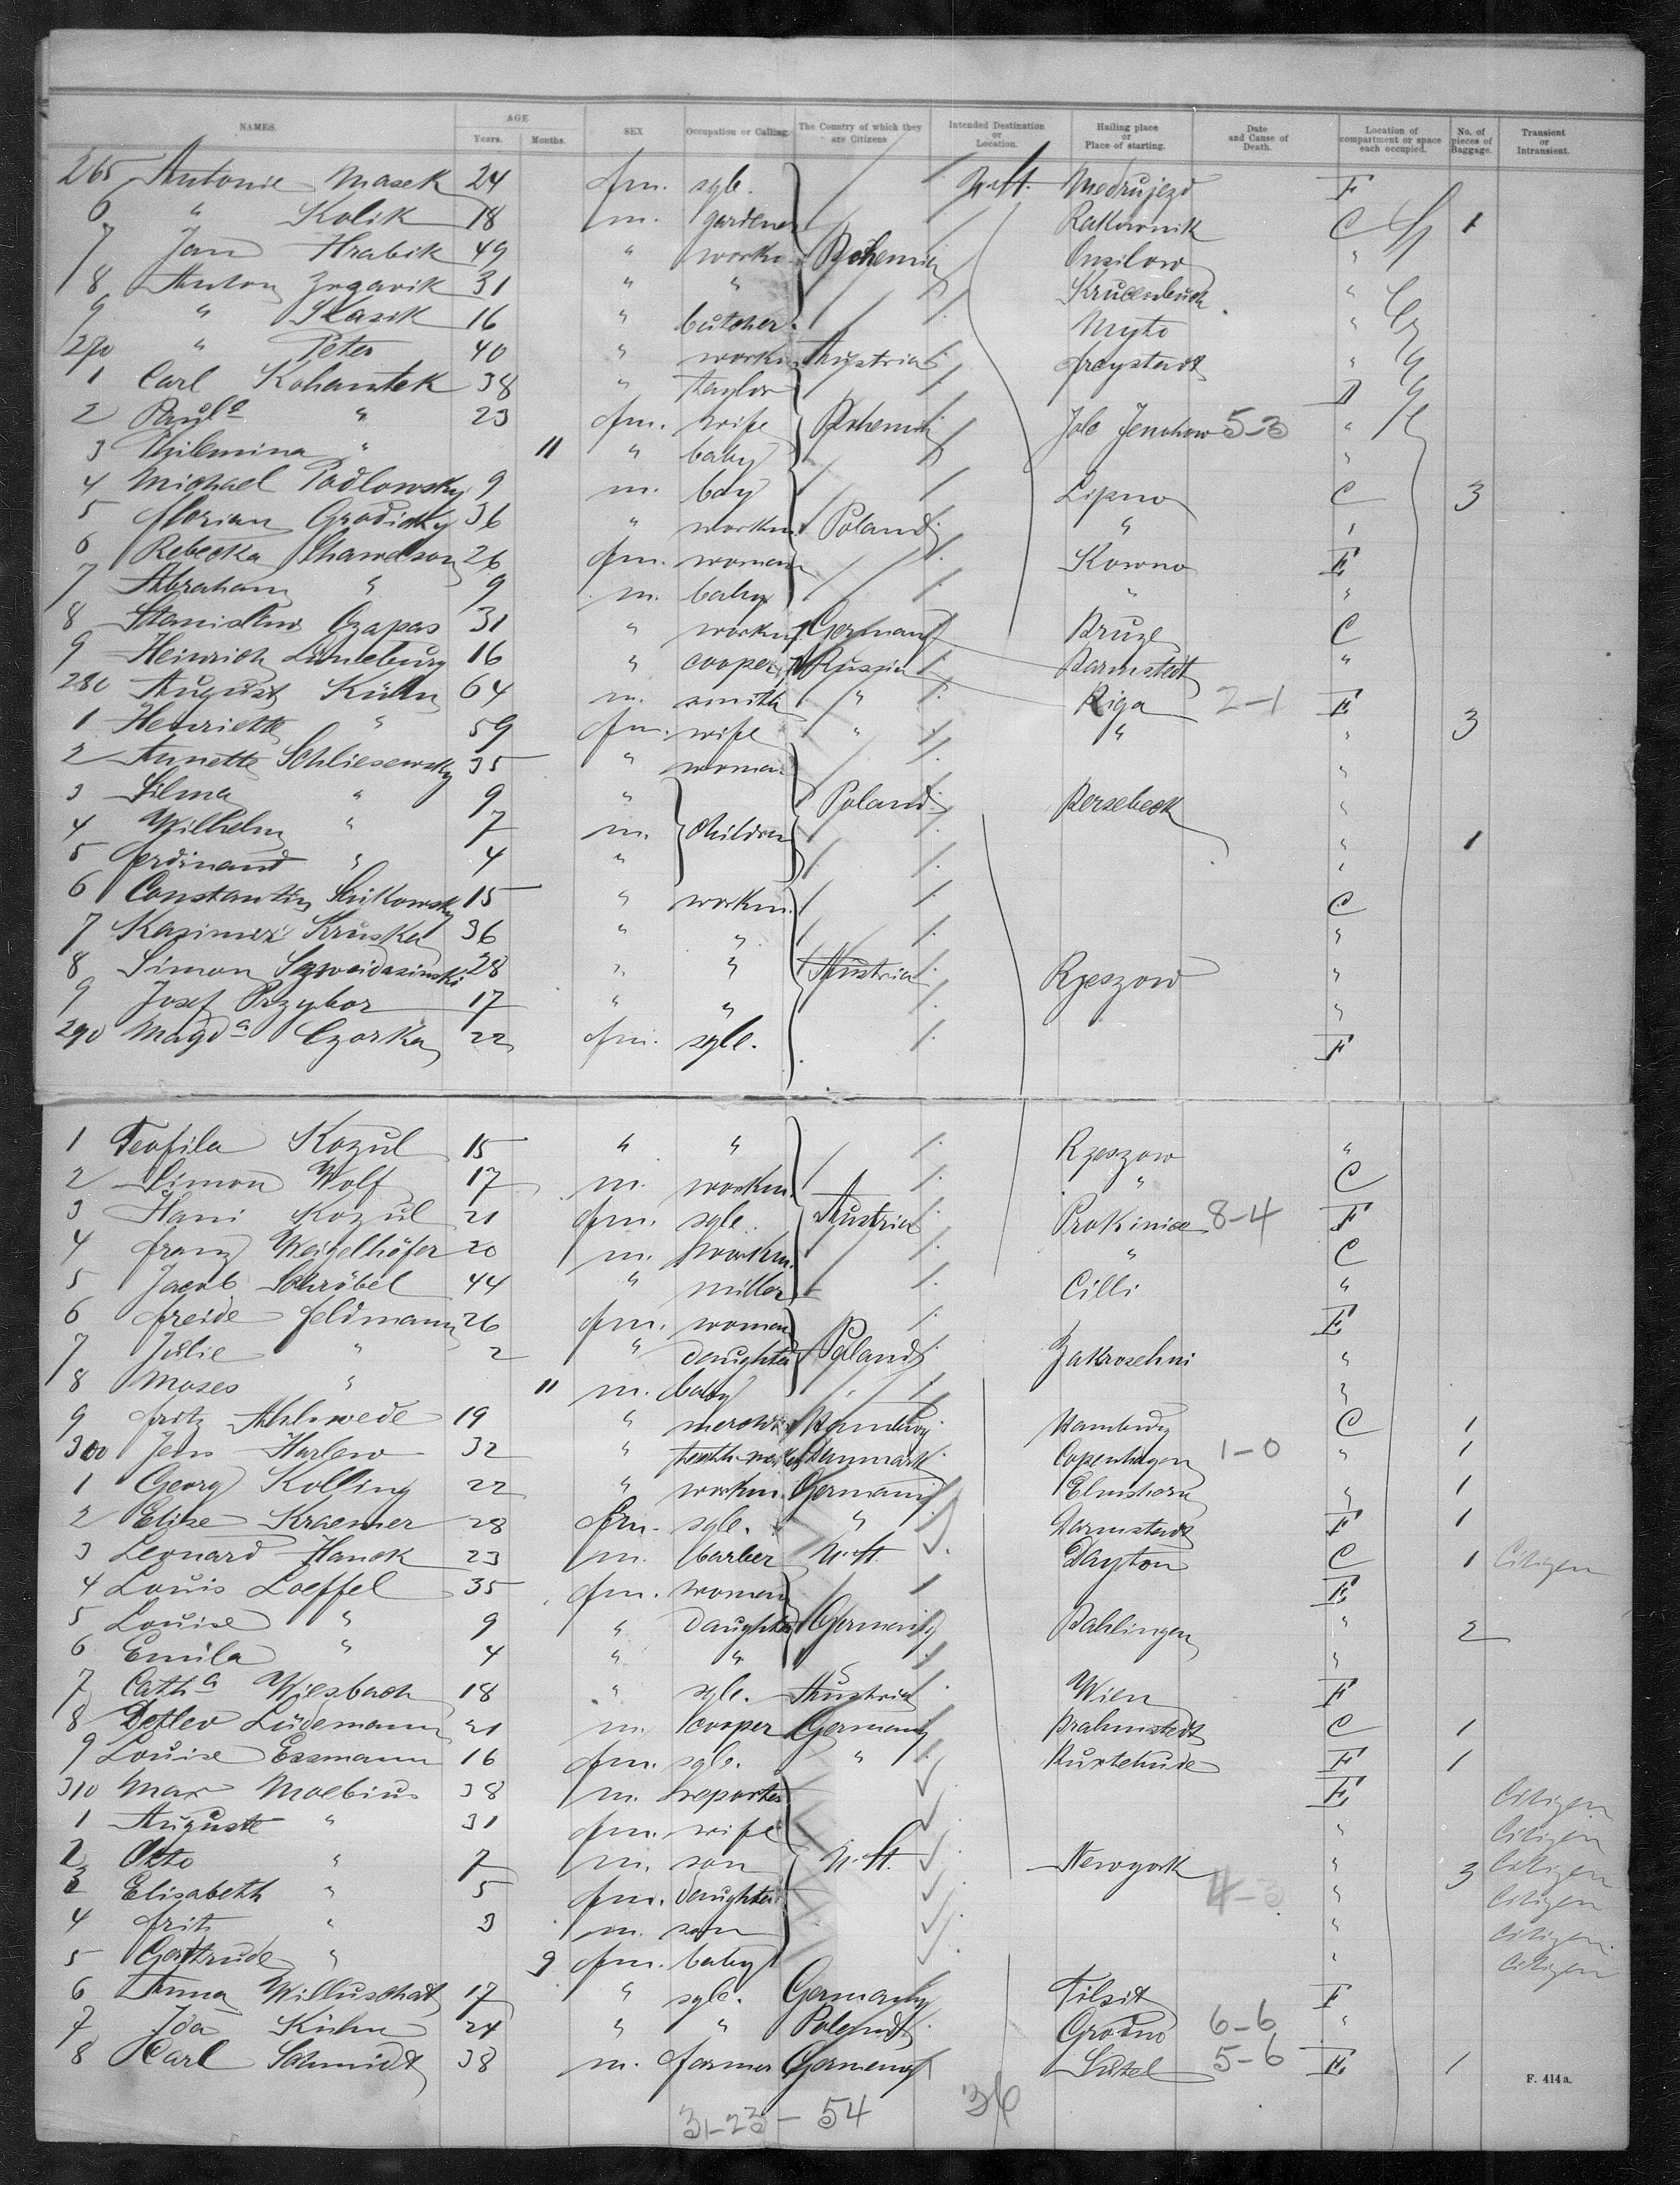 NAMES. AGE Years. Months. SEX Occupation or Calling. The Country of which they are Citizens Intended Destination or Location. Hailing place or Place of starting. Date and Cause of Death. Location of compartment or space each occupied. No. of pieces of Baggage. Transient or Intransient.
265 Antonie Masek 24 fm. sgle. U. St. Medrujezd F
6 " Kolik 18 m. gardener Rakownik C 1
7 Jan Hrabik 49 " workm. Bohemia "
8 Anton 31 " " "
9 " 16 " butcher Myto "
270 " Peter 40 " workm. Austria freystadt "
1 Carl Kohantek 38 " taylor
2 Paula " 23 fm. wife Bohemia Jenchow 5-3 "
3 Wilemina " 11 " baby "
4 Michael Podlowsky 9 m. boy Lipno C 3
5 florian Grodicky 36 " workm. Poland " "
6 Rebecka 26 fm. woman Kowno E
7 Abraham " 9 m. baby " "
8 Stanislaw Czapas 31 " workm. Germany C
9 Heinrich Lüneburg 16 " cooper Russia Darmstedt "
280 August Kühn 64 m. smith " Riga 2-1 E
1 Henriette " 59 fm. wife " " " 3
2 Annette Schliesewsky 35 " woman "
3 Silma " 9 " Poland Bersebeck "
4 Wilhelm " 7 m. children " 1
5 ferdinand " 4 " "
6 Constantin 15 " workm. C
7 Kasimir Kruska 36 " " "
8 Simon 28 " " Austria Rzeszow "
9 Josef Przybor 17 " " "
290 Magda Czorka 22 fm. sgle. F
1 Teofila Kozul 15 " " Rzeszow "
2 Simon Wolf 17 m. workm. " C
3 Hani Kozul 21 fm. sgle. Austria Prokinice 8-4 F
4 franz Weigelhöfer 20 m. workm. " C
5 Jacob Schröbel 44 " miller Cilli "
6 freide feldmann 26 fm. woman E
7 Julie " 2 " daughter Poland Zakroschni "
8 Moses " 11 m. baby "
9 fritz Ahlswede 19 " merchant Hamburg Hamburg C 1
300 Jens Harlew 32 " Danmark Copenhagen 1-0 " 1
1 Georg Kolling 22 " workm. Germany Elmshorn " 1
2 Elise Kraemer 28 fm. sgle. " Darmstadt F 1
3 Leonard Hanck 23 m. barber U. St. Dayton C 1 Citizen
4 Louis Loeffel 35 fm. woman E
5 Louise " 9 " daughter Germany Bahlingen " 2
6 Emila " 4 " " "
7 Catha Wiesbach 18 " sgle. Austria Wien F
8 Detlev Lüdemann 21 m. cooper Germany Brahmstedt C 1
9 Louise Essmann 16 fm. sgle. " Buxtehude F 1
310 Max Moebius 38 m. reporter E Citizen
1 Auguste " 31 fm. wife " Citizen
2 Otto " 7 m. son U. St. Newyork " 3 Citizen
3 Elisabeth " 5 fm. daughter 4-3 " Citizen
4 fritz " 3 m. son " Citizen
5 Gertrude " 9 fm. baby " Citizen
6 Anna Willuschat 17 " sgle. Germany Tilsit F
7 Ida Kühn 24 " " Poland Grodno 6-6 "
8 Carl Schmidt 38 m. farmer Germany 5-6 E 1
31-23 - 54 36
F. 414a.